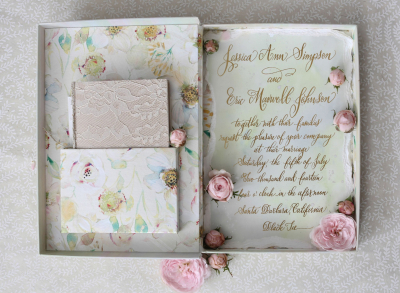 Jessica Ann Simpson
and
Eric Maxwell Johnson
together with their families
request the pleasure of your company
at their marriage
Saturday, the fifth of July
two thousand and fourteen
o'clock in the afternoon
Santa Barbara, California
Black Tie